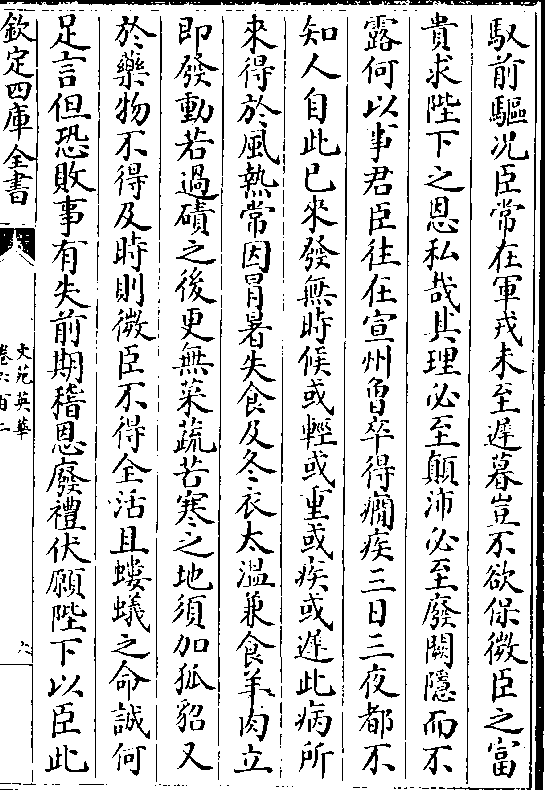 馭前驅况臣常在軍戎未至遲暮豈不欲保微臣之富
貴求陛下之恩私哉其理必至顛沛必至廢闕隱而不
露何以事君臣往任宣州曾卒得癇疾三日三夜都不
知人自此已來發無時候或輕或重或疾或遲此病所
來得於風熱常因冒暑失食及冬衣太溫兼食羊肉立
即發動若過磧之後更無菜蔬苦寒之地須加狐貂又
於藥物不得及時則微臣不得全活且螻蟻之命誠何
足言但恐敗事有失前期稽恩廢禮伏願陛下以臣此
欽定四庫全書
文苑英華
卷六百二
六